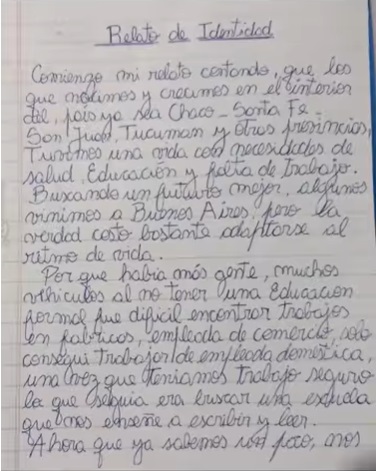 Relato de Identidad
Comienzo mi relato contando, que los
que nacimos y crecimos en el interior
del, pais ya sea Chaco - Santa Fe -
San Juan, Tucuman y otras provincias,
Tuvimos una vida con necesidades de
salud, Educación y falta de trabajo.
Buscando un futuro mejor, algunos
vinimos a Buenos Aires, pero la
verdad costo bastante adaptarse al
ritmo de vida.
Por que habia más gente, muchos
vehiculos al no tener una Educación
formal fue dificil encontrar trabajos
en fabricas, empleada de comercio, solo
consegui trabajor de empleada doméstica,
una vez que teniamos trabajo seguro
lo que seguia era buscar una escuela
que nos enseñe a escribir y leer.
Ahora que ya sabemos un poco, nos